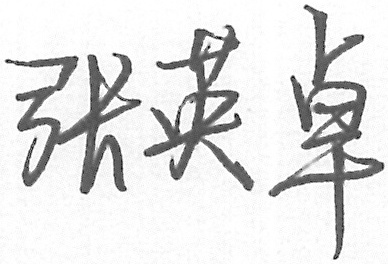 张英卓